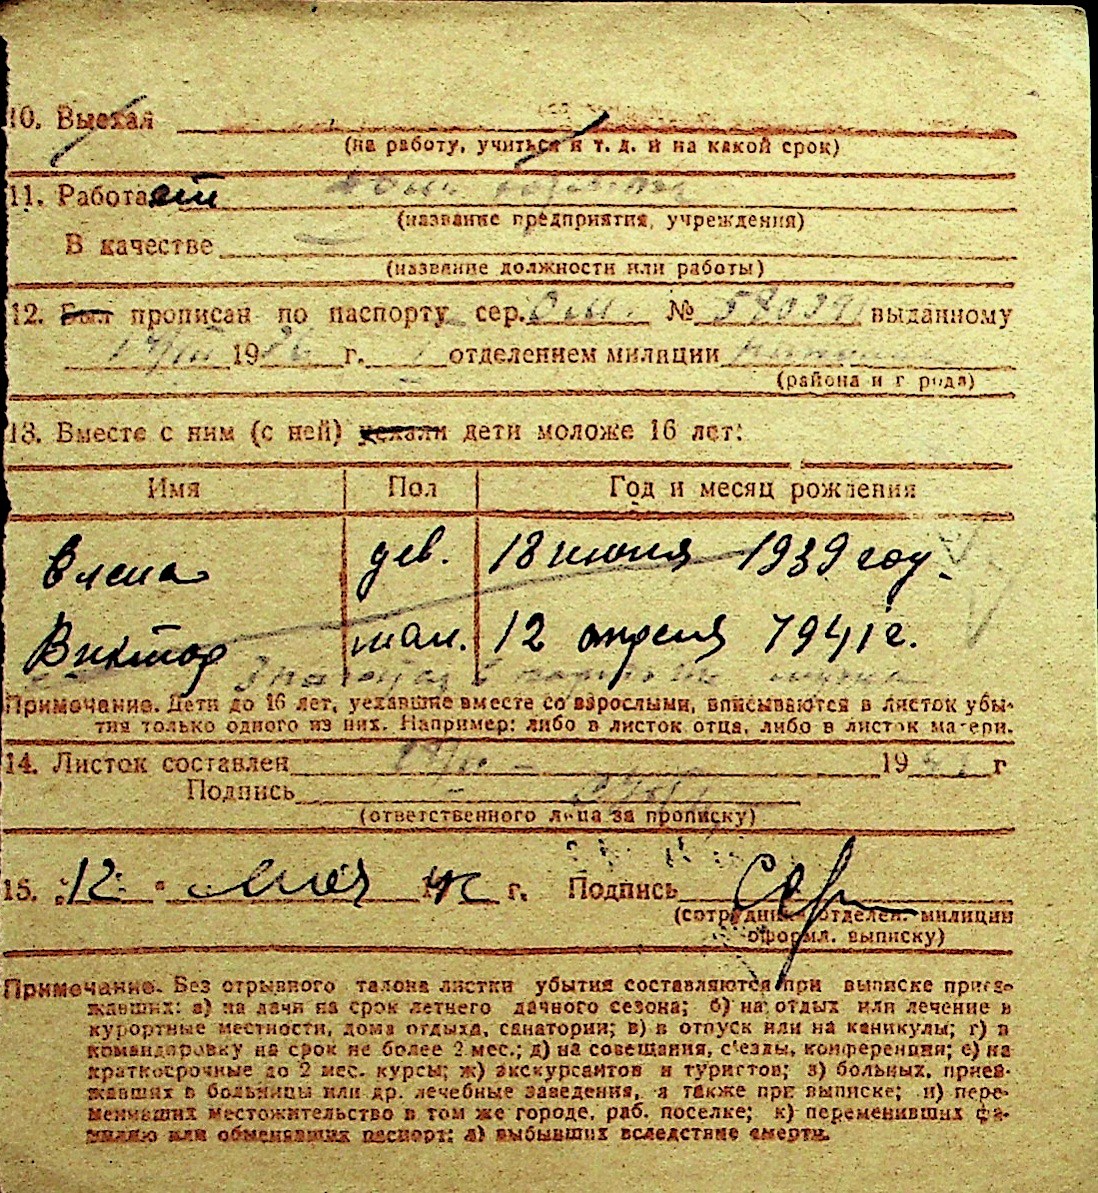 10. Выехал
(на работу, учиться и т. д. и на какой срок)
11. Работает
(название предприятия, учреждения)
В качестве
(название должности или работы)
12. Был прописан по паспорту сер. № выданному
19 г. отделением милиции
(района и города)
13. Вместе с ним (с ней) уехали дети моложе 16 лет:
Имя Пол Год и месяц рождения
Елена дев. 18 июня 1939 год.
Виктор мал. 12 апреля 1941 г.
Примечание. Дети до 16 лет, уехавшие вместе со взрослыми, вписываются в листок убы-
тия только одного из них. Например: либо в листок отца, либо в листок матери.
14. Листок составлен 19 г
Подпись
(ответственного лица за прописку)
15. "12" мая 1942 г. Подпись
(сотрудника отделен. милиции
оформл. выписку)
Примечание. Без отрывного талона листки убытия составляются при выписке приез-
жавших: а) на дачи на срок летнего дачного сезона; б) на отдых или лечение в
курортные местности, дома отдыха, санатории; в) в отпуск или на каникулы; г) в
командировку на срок не более 2 мес.; д) на совещания, с'езды, конференции; е) на
краткосрочные до 2 мес. курсы; ж) экскурсантов и туристов; з) больных, приез-
жавших в больницы или др. лечебные заведения, а также при выписке; и) пере-
менивших местожительство в том же городе, раб. поселке; к) переменивших фа-
милию или обменявших паспорт; л) выбывших вследствие смерти.